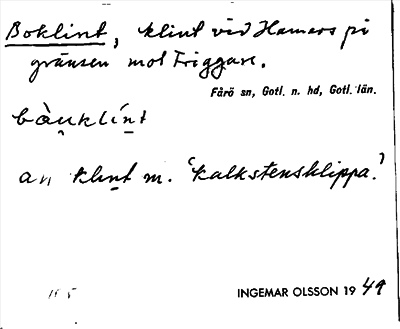 Boklint, klint vid Hamars på
gränsen mot Friggars.
Fårö sn, Gotl. n. hd, Gotl. län.
bàu̯klín̠t
an klin̠t m. ‘kalkstensklippa.’
INGEMAR OLSSON 19 49